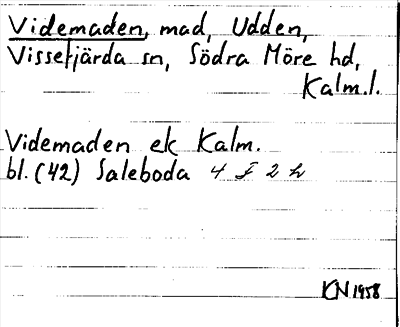 Videmaden, mad, Udden,
Vissefjärda sn, Södra Möre hd,
Kalm.l.
Videmaden ek Kalm.
bl. (42) Saleboda 4 I 2 h
KN 1958